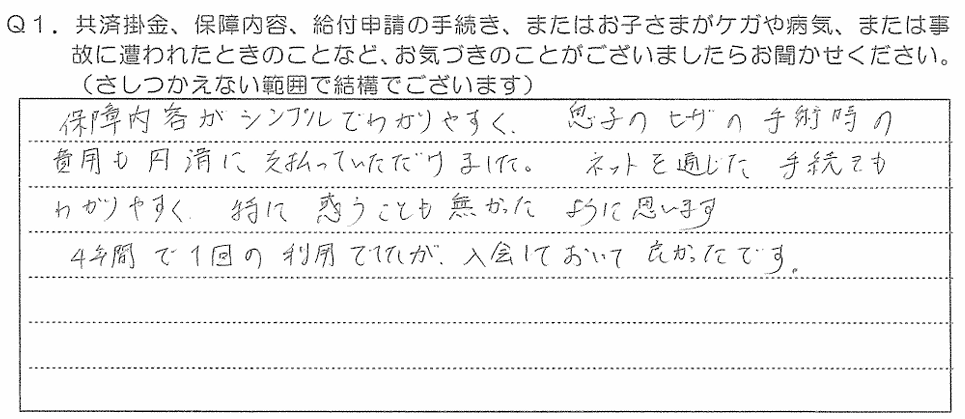 Q1．共済掛金、保障内容、給付申請の手続き、またはお子さまがケガや病気、または事
故に遭われたときのことなど、お気づきのことがございましたらお聞かせください。
（さしつかえない範囲で結構でございます）
保障内容がシンプルでわかりやすく、息子のヒザの手術時の
費用も円滑に支払っていただけました。ネットを通じた手続きも
わかりやすく、特に惑うことも無かったように思います
4年間で1回の利用でしたが、入会しておいて良かったです。